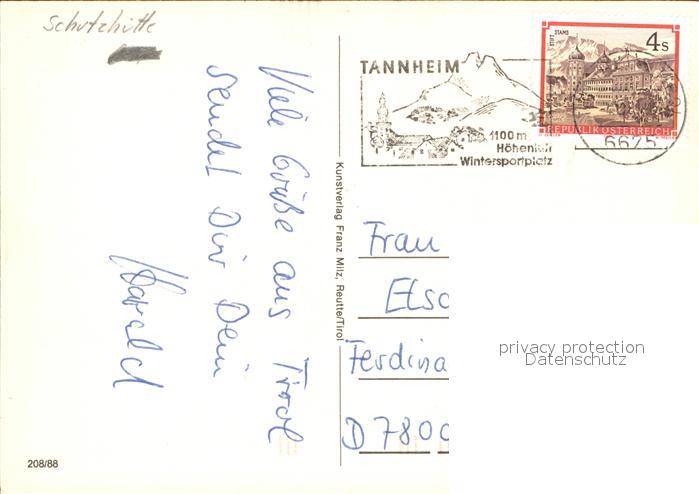 Schutzhütte
Viele Grüße aus Tirol
sendet Dir Dein
Harald
208/88
Kunstverlag Franz Milz, Reutte/Tirol
TANNHEIM
1100 m
Höhenluft
Wintersportplatz
STIFT STAMS
4 S
REPUBLIK ÖSTERREICH
6675
Frau
Elsa
Ferdina
D 7800
privacy protection
Datenschutz